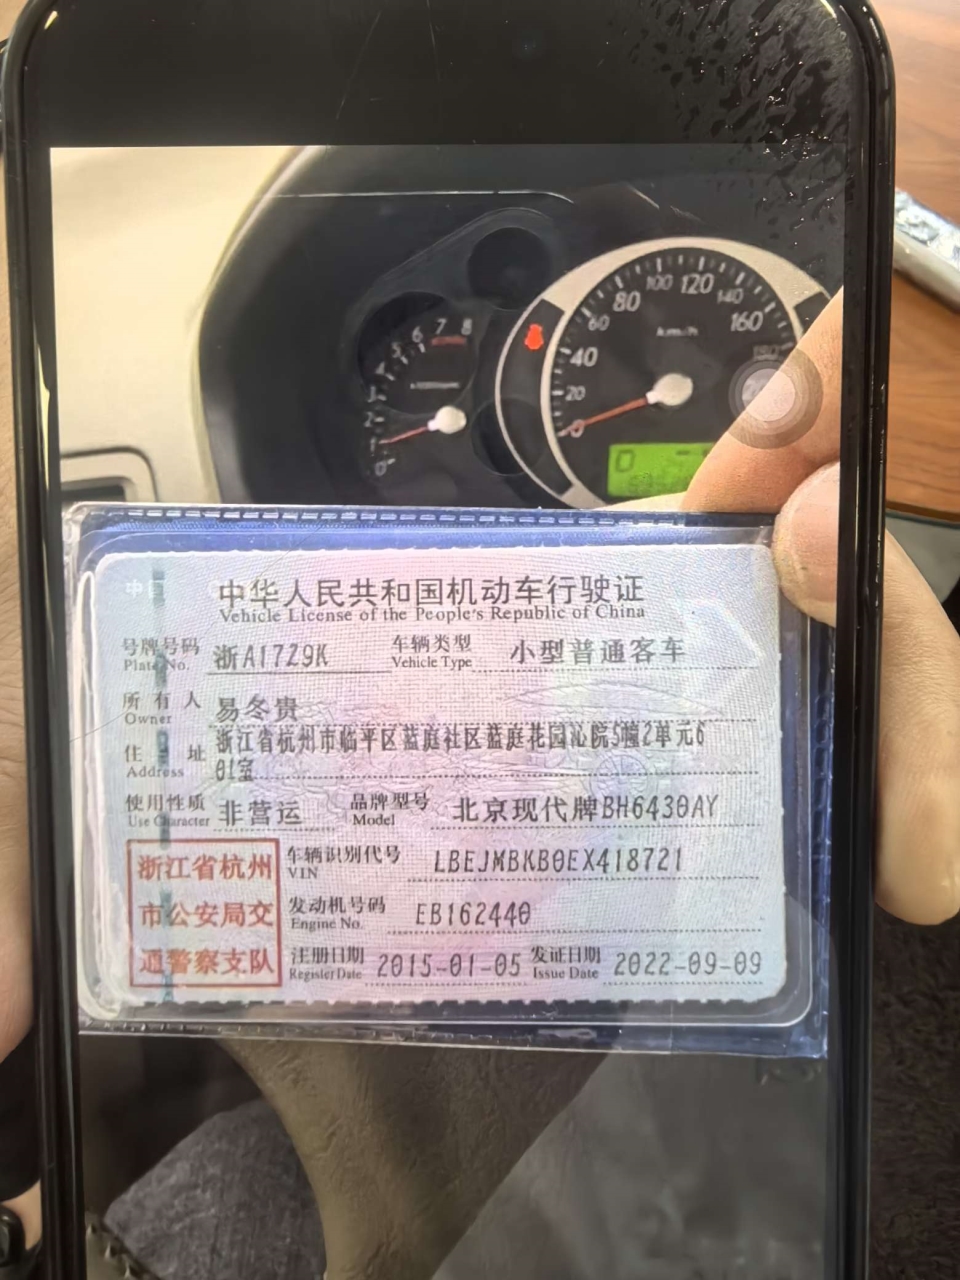 5 6 7 8
3
2
1
0
60 80 100 120 140 160
km/h
40
20
0
中华人民共和国机动车行驶证
Vehicle License of the People's Republic of China
号牌号码 浙A17Z9K 车辆类型 小型普通客车
Plate No. Vehicle Type
所有人 易冬贵
Owner
住址 浙江省杭州市临平区蓝庭社区蓝庭花园沁院5幢2单元6
Address 01室
使用性质 非营运 品牌型号 北京现代牌BH6430AY
Use Character Model
浙江省杭州
市公安局交
通警察支队
车辆识别代号 LBEJMBKB0EX418721
VIN
发动机号码 EB162440
Engine No.
注册日期 2015-01-05 发证日期 2022-09-09
Register Date Issue Date